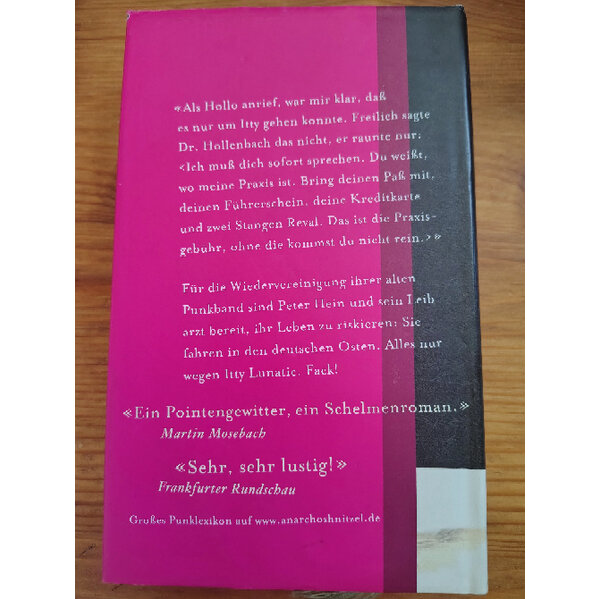 «Als Hollo anrief, war mir klar, daß
es nur um Itty gehen konnte. Freilich sagte
Dr. Hollenbach das nicht, er raunte nur:
‹Ich muß dich sofort sprechen. Du weißt,
wo meine Praxis ist. Bring deinen Paß mit,
deinen Führerschein, deine Kreditkarte
und zwei Stangen Reval. Das ist die Praxis-
gebühr, ohne die kommst du nicht rein.›»
Für die Wiedervereinigung ihrer alten
Punkband sind Peter Hein und sein Leib
arzt bereit, ihr Leben zu riskieren: Sie
fahren in den deutschen Osten. Alles nur
wegen Itty Lunatic. Fack!
«Ein Pointengewitter, ein Schelmenroman.»
Martin Mosebach
«Sehr, sehr lustig!»
Frankfurter Rundschau
Großes Punklexikon auf www.anarchoshnitzel.de